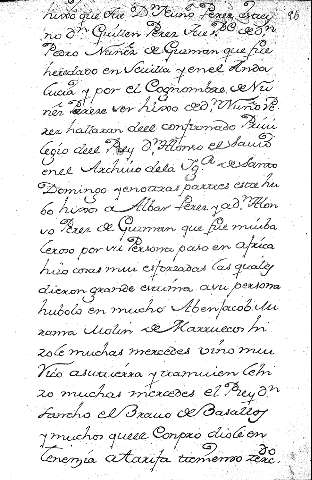 hixo que fue D.n Nuno Perez
no d.n Guillen Perez fue P.e de d.n
Pedro Nuñez de Guzman que fue
heredado en Sevilla y en el Anda
lucia y por el Cognombre de Nu
ñez Perece ser hixo de d.n Nuño Pe
rez hallaran dele confirmado Privi
legio del Rey d.n Alonso el Savio
en el Archivo de la Yg.a de Santo
Domingo y en otras partes este hu
bo hixo a Albar Perez y a d.n Alon
so Perez de Guzman que fue mui ba
leroso por su Persona paso en africa
hizo cosas mui esforzadas las quales
dieron grande estima a su persona
hubolo en mucho Abenjacob Au
rama Molin de Marruecos hi
zole muchas mercedes vino mui
rico a su tierra y tambien le hi
zo muchas mercedes el Rey d.n
Sancho el Bravo de Basallos
y mucho que el Conpro diole en
Tenenzia a Tarifa teniendo zerc.do